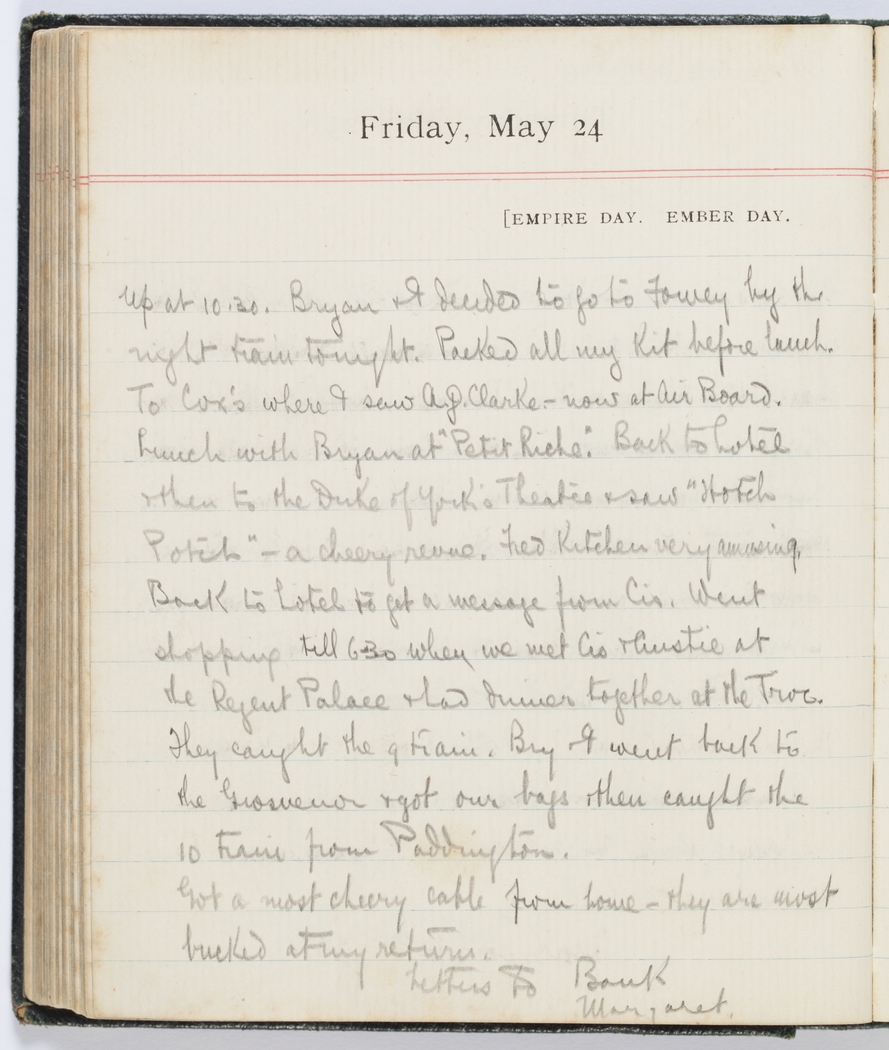 Friday, May 24
[EMPIRE DAY. EMBER DAY.
Up at 10.30. Bryan & I decided to go to Fowey by the
night train tonight. Packed all my kit before lunch.
To Cox's where I saw A.J. Clarke - now at Air Board.
Lunch with Bryan at "Petit Riche". Back to hotel
& then to the Duke of York's Theatre & saw "Hotch
Potch" - a cheery revue. Fred Kitchen very amusing.
Back to hotel to get a message from Cis. Went
shopping till 6.30 when we met Cis & at
the Regent Palace & had dinner together at the Troc.
They caught the 9 train. Bry & I went back to
the Grosvenor & got our bags & then caught the
10 train from Paddington.
Got a most cheery cable from home - they are most
bucked at my return.
Letters to Bank
Margaret.